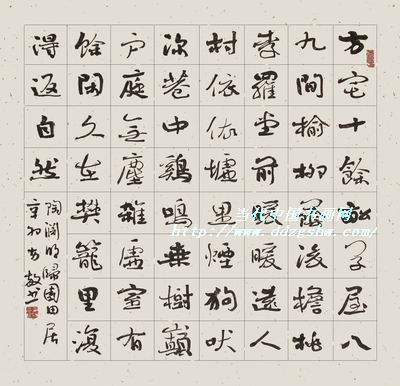 方宅十餘畝草屋八
九間榆柳蔭後檐桃
李羅堂前暖暖遠人
村依依墟里煙狗吠
深巷中鷄鳴桑樹巔
戶庭無塵雜虛室有
餘閑久在樊籠里復
得返自然
陶淵明歸園田居
辛卯
当代中国书画网
http://www.ddzgshw.com/